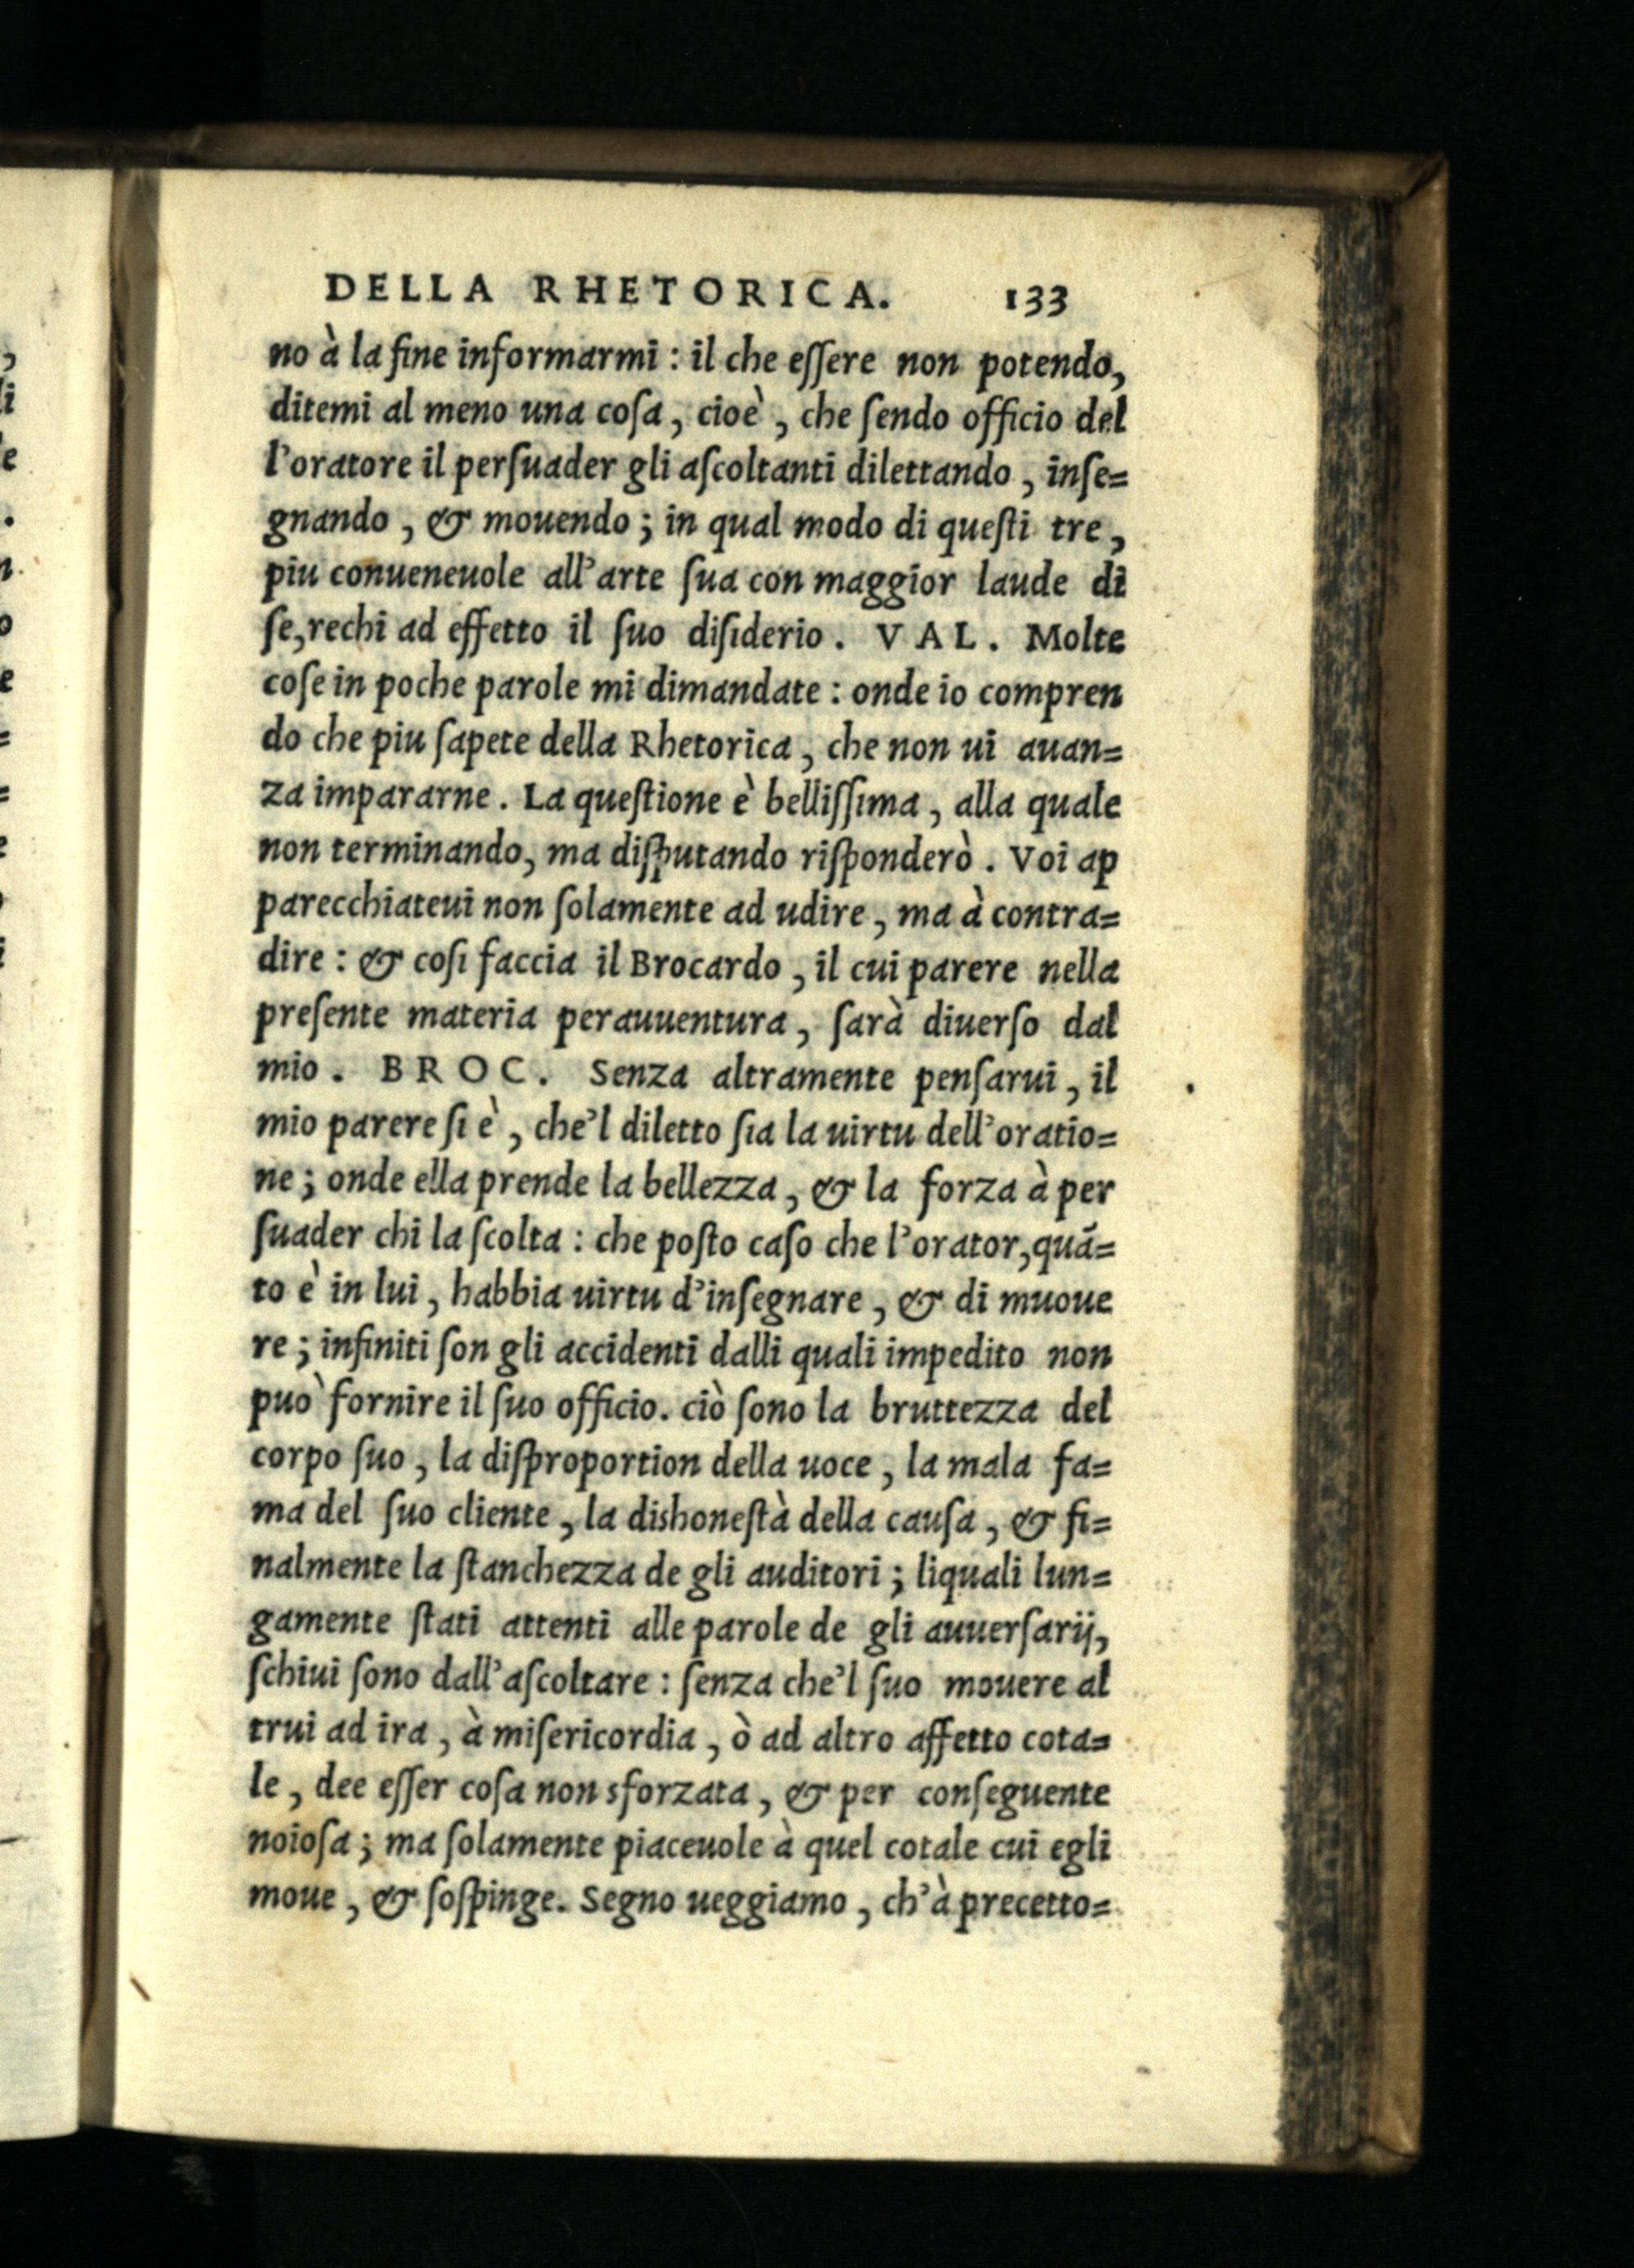 DELLA RHETORICA. 133
no à la fine informarmi : il che eſſere non potendo,
ditemi al meno una coſa , cioè , che ſendo officio del
l'oratore il perſuader gli aſcoltanti dilettando , inſe=
gnando , & mouendo ; in qual modo di queſti tre ,
piu conueneuole all'arte ſua con maggior laude di
ſe,rechi ad effetto il ſuo diſiderio . VAL . Molte
coſe in poche parole mi dimandate : onde io compren
do che piu ſapete della Rhetorica , che non ui auan=
za impararne . La queſtione è belliſſima , alla quale
non terminando, ma diſputando riſponderò . Voi ap
parecchiateui non ſolamente ad udire , ma à contra=
dire : & coſi faccia il Brocardo , il cui parere nella
preſente materia perauuentura , ſarà diuerſo dal
mio . BROC . Senza altramente penſarui , il
mio parere ſi è , che'l diletto ſia la uirtu dell'oratio=
ne ; onde ella prende la bellezza , & la forza à per
ſuader chi la ſcolta : che poſto caſo che l'orator,quã=
to è in lui , habbia uirtu d'inſegnare , & di muoue
re ; infiniti ſon gli accidenti dalli quali impedito non
può fornire il ſuo officio. ciò ſono la bruttezza del
corpo ſuo , la diſproportion della uoce , la mala fa=
ma del ſuo cliente , la dishoneſtà della cauſa , & fi=
nalmente la ſtanchezza de gli auditori ; liquali lun=
gamente ſtati attenti alle parole de gli auuerſarij,
ſchiui ſono dall'aſcoltare : ſenza che'l ſuo mouere al
trui ad ira , à miſericordia , ò ad altro affetto cota=
le , dee eſſer coſa non sforzata , & per conſeguente
noioſa ; ma ſolamente piaceuole à quel cotale cui egli
moue , & ſoſpinge. Segno ueggiamo , ch'à precetto=